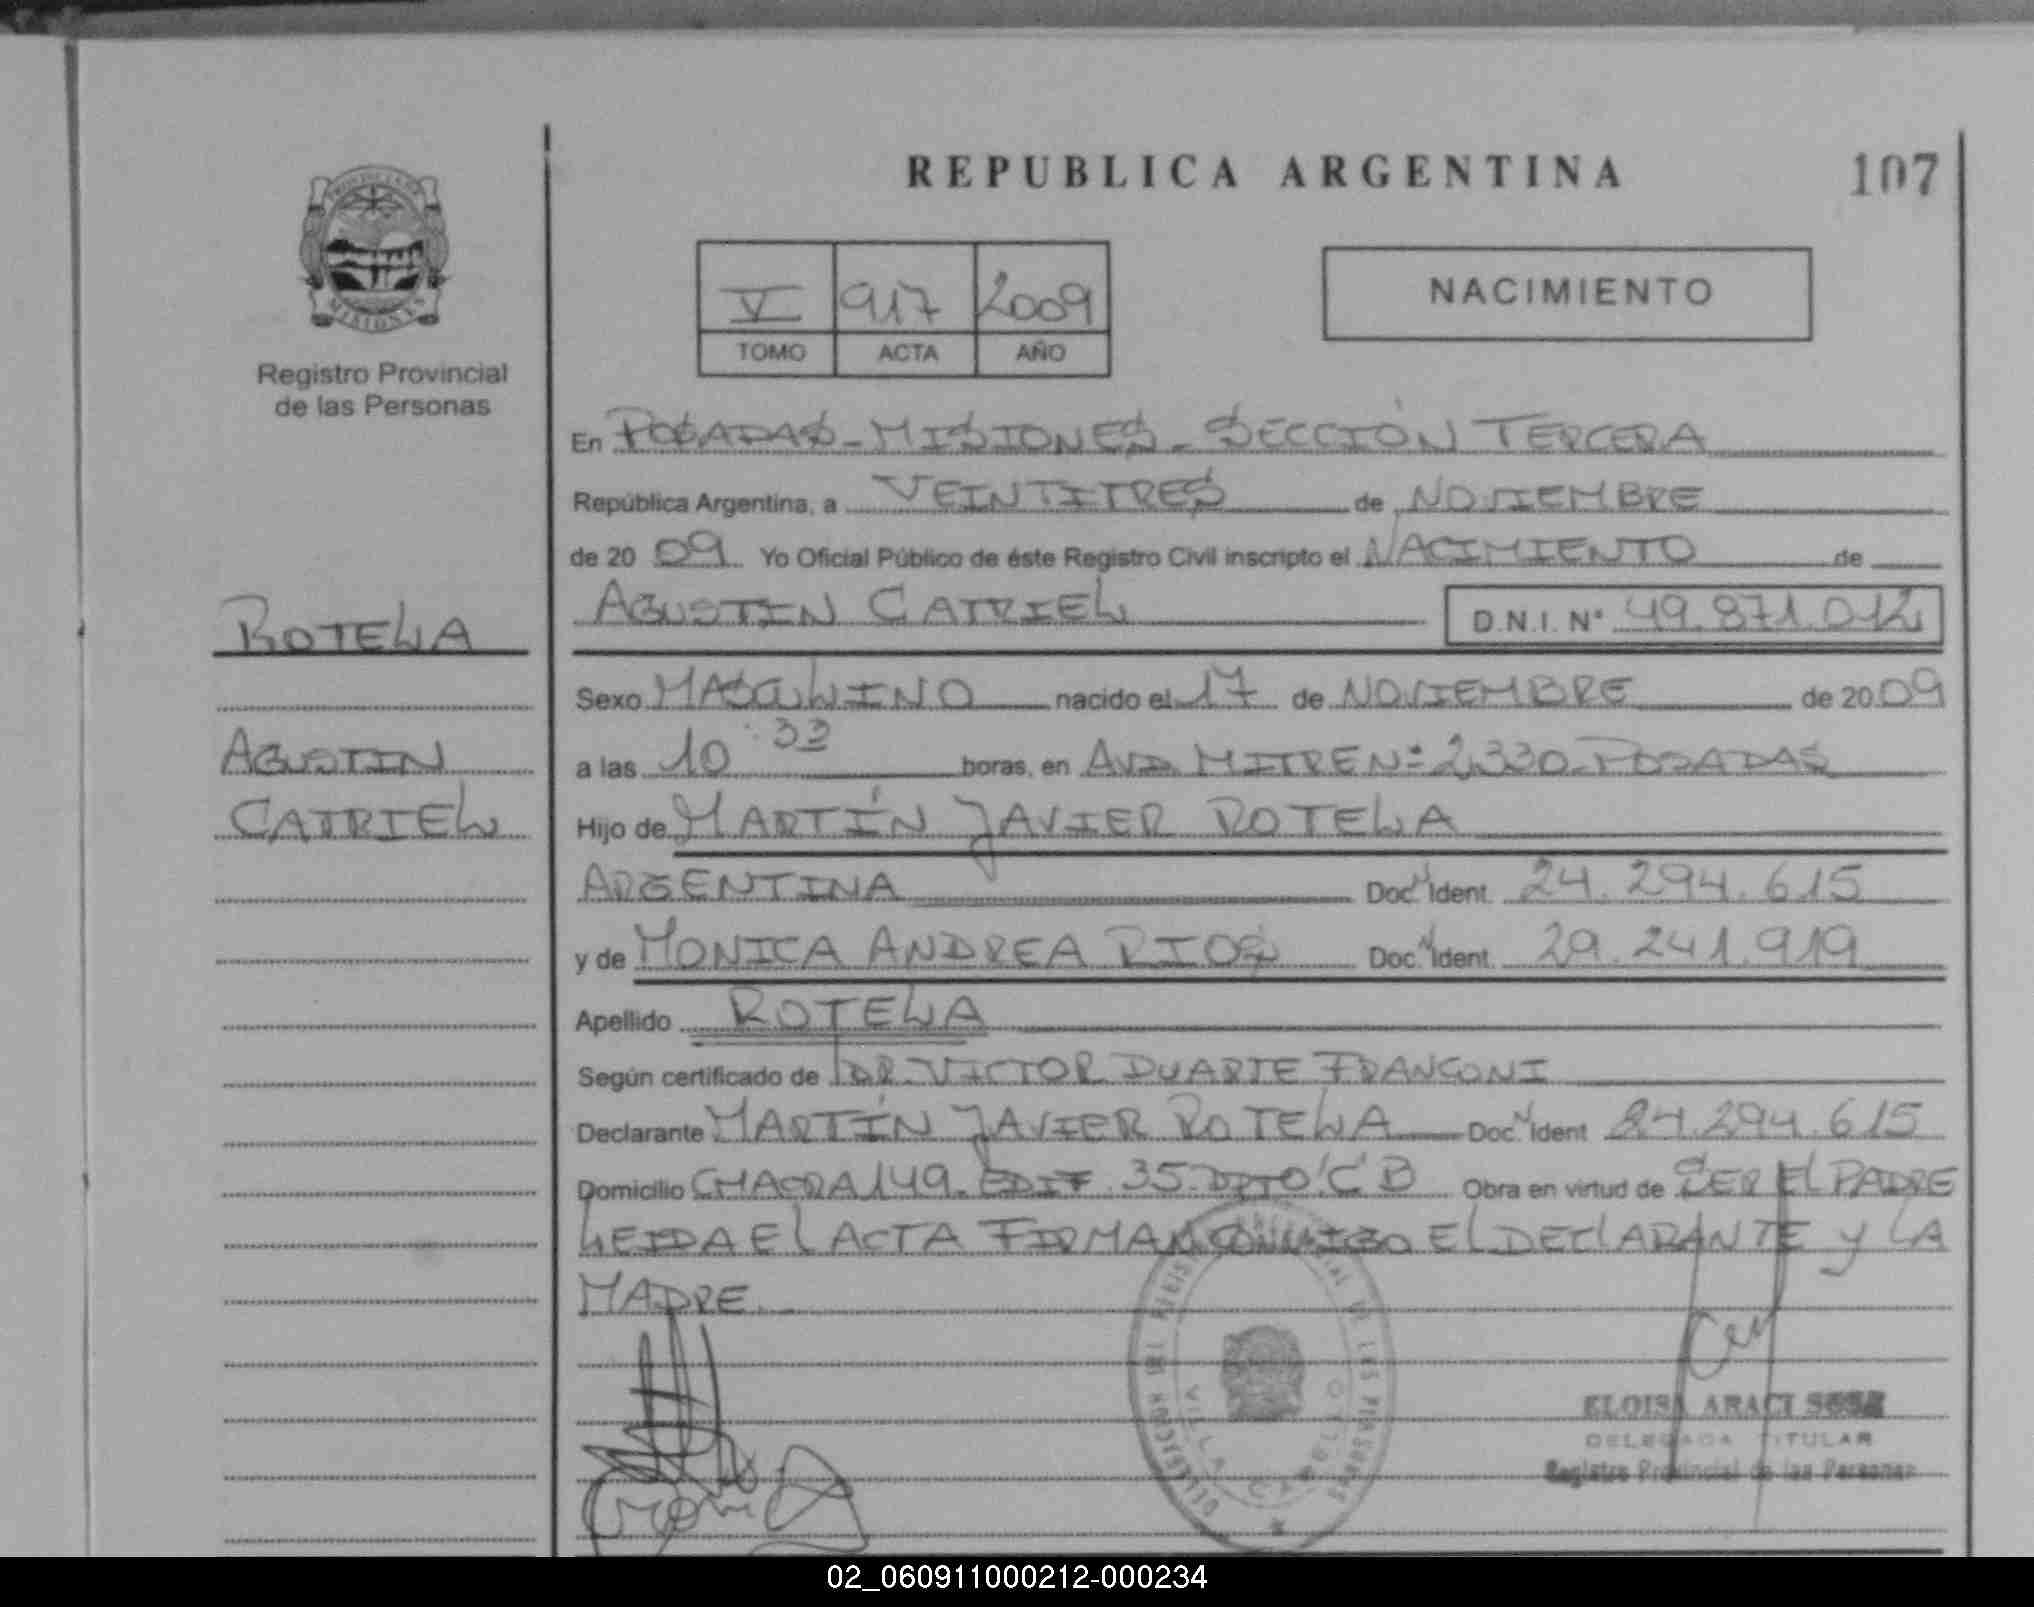 REPUBLICA ARGENTINA
107
PROVINCIA DE
MISIONES
Registro Provincial
de las Personas
V 917 2009
TOMO ACTA AÑO
NACIMIENTO
En POSADAS - MISIONES - SECCIÓN TERCERA
República Argentina, a VEINTITRES de NOVIEMBRE
de 20 09 Yo Oficial Público de éste Registro Civil inscripto el NACIMIENTO de
AGUSTIN CATRIEL D.N.I. Nº 49.871.012
ROTELLA
AGUSTIN
CATRIEL
Sexo MASCULINO nacido el 17 de NOVIEMBRE de 20 09
a las 10:33 horas, en AVDA. MITRE Nº 2330 - POSADAS
Hijo de MARTÍN JAVIER ROTELLA
ARGENTINA Doc. N Ident. 24.294.615
y de MONICA ANDREA RIOS Doc. N Ident. 29.241.919
Apellido ROTELLA
Según certificado de DR. VICTOR DUARTE FRANCONI
Declarante MARTÍN JAVIER ROTELLA Doc. N Ident 24.294.615
Domicilio CHACRA 149. EDIF. 35. DPTO. "C" B Obra en virtud de SER EL PADRE
LEIDA EL ACTA FIRMAN CONMIGO EL DECLARANTE Y LA
MADRE.
DELEGACION DEL REGISTRO PROVINCIAL DE LAS PERSONAS
VILLA CABELLO
ELOISA ARACI SOSA
DELEGADA TITULAR
Registro Provincial de las Personas
02_060911000212-000234